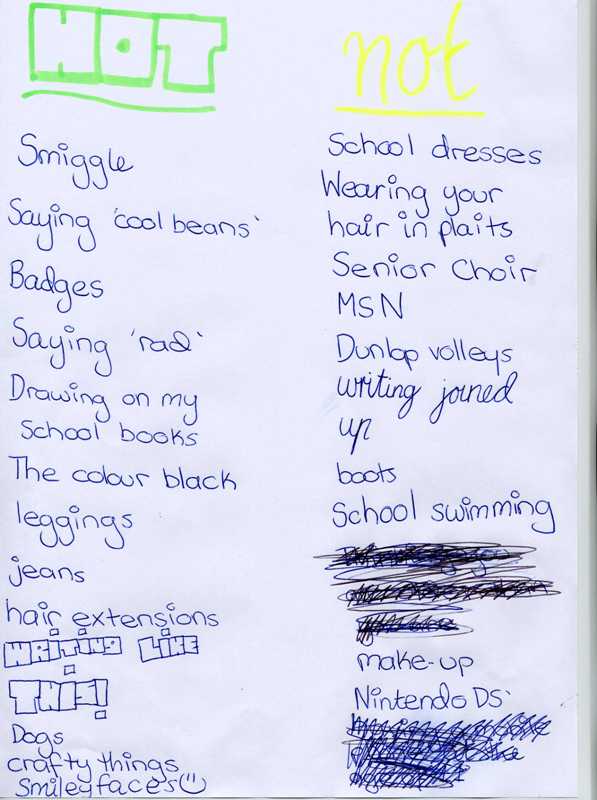 HOT
Smiggle
Saying 'cool beans'
Badges
Saying 'rad'
Drawing on my
School books
The colour black
leggings
jeans
hair extensions
WRiTiNG LiKE
THiS!
Dogs
crafty things
Smiley faces
not
School dresses
Wearing your
hair in plaits
Senior Choir
MSN
Dunlop volleys
writing joined
up
boots
School swimming
make-up
Nintendo DS'